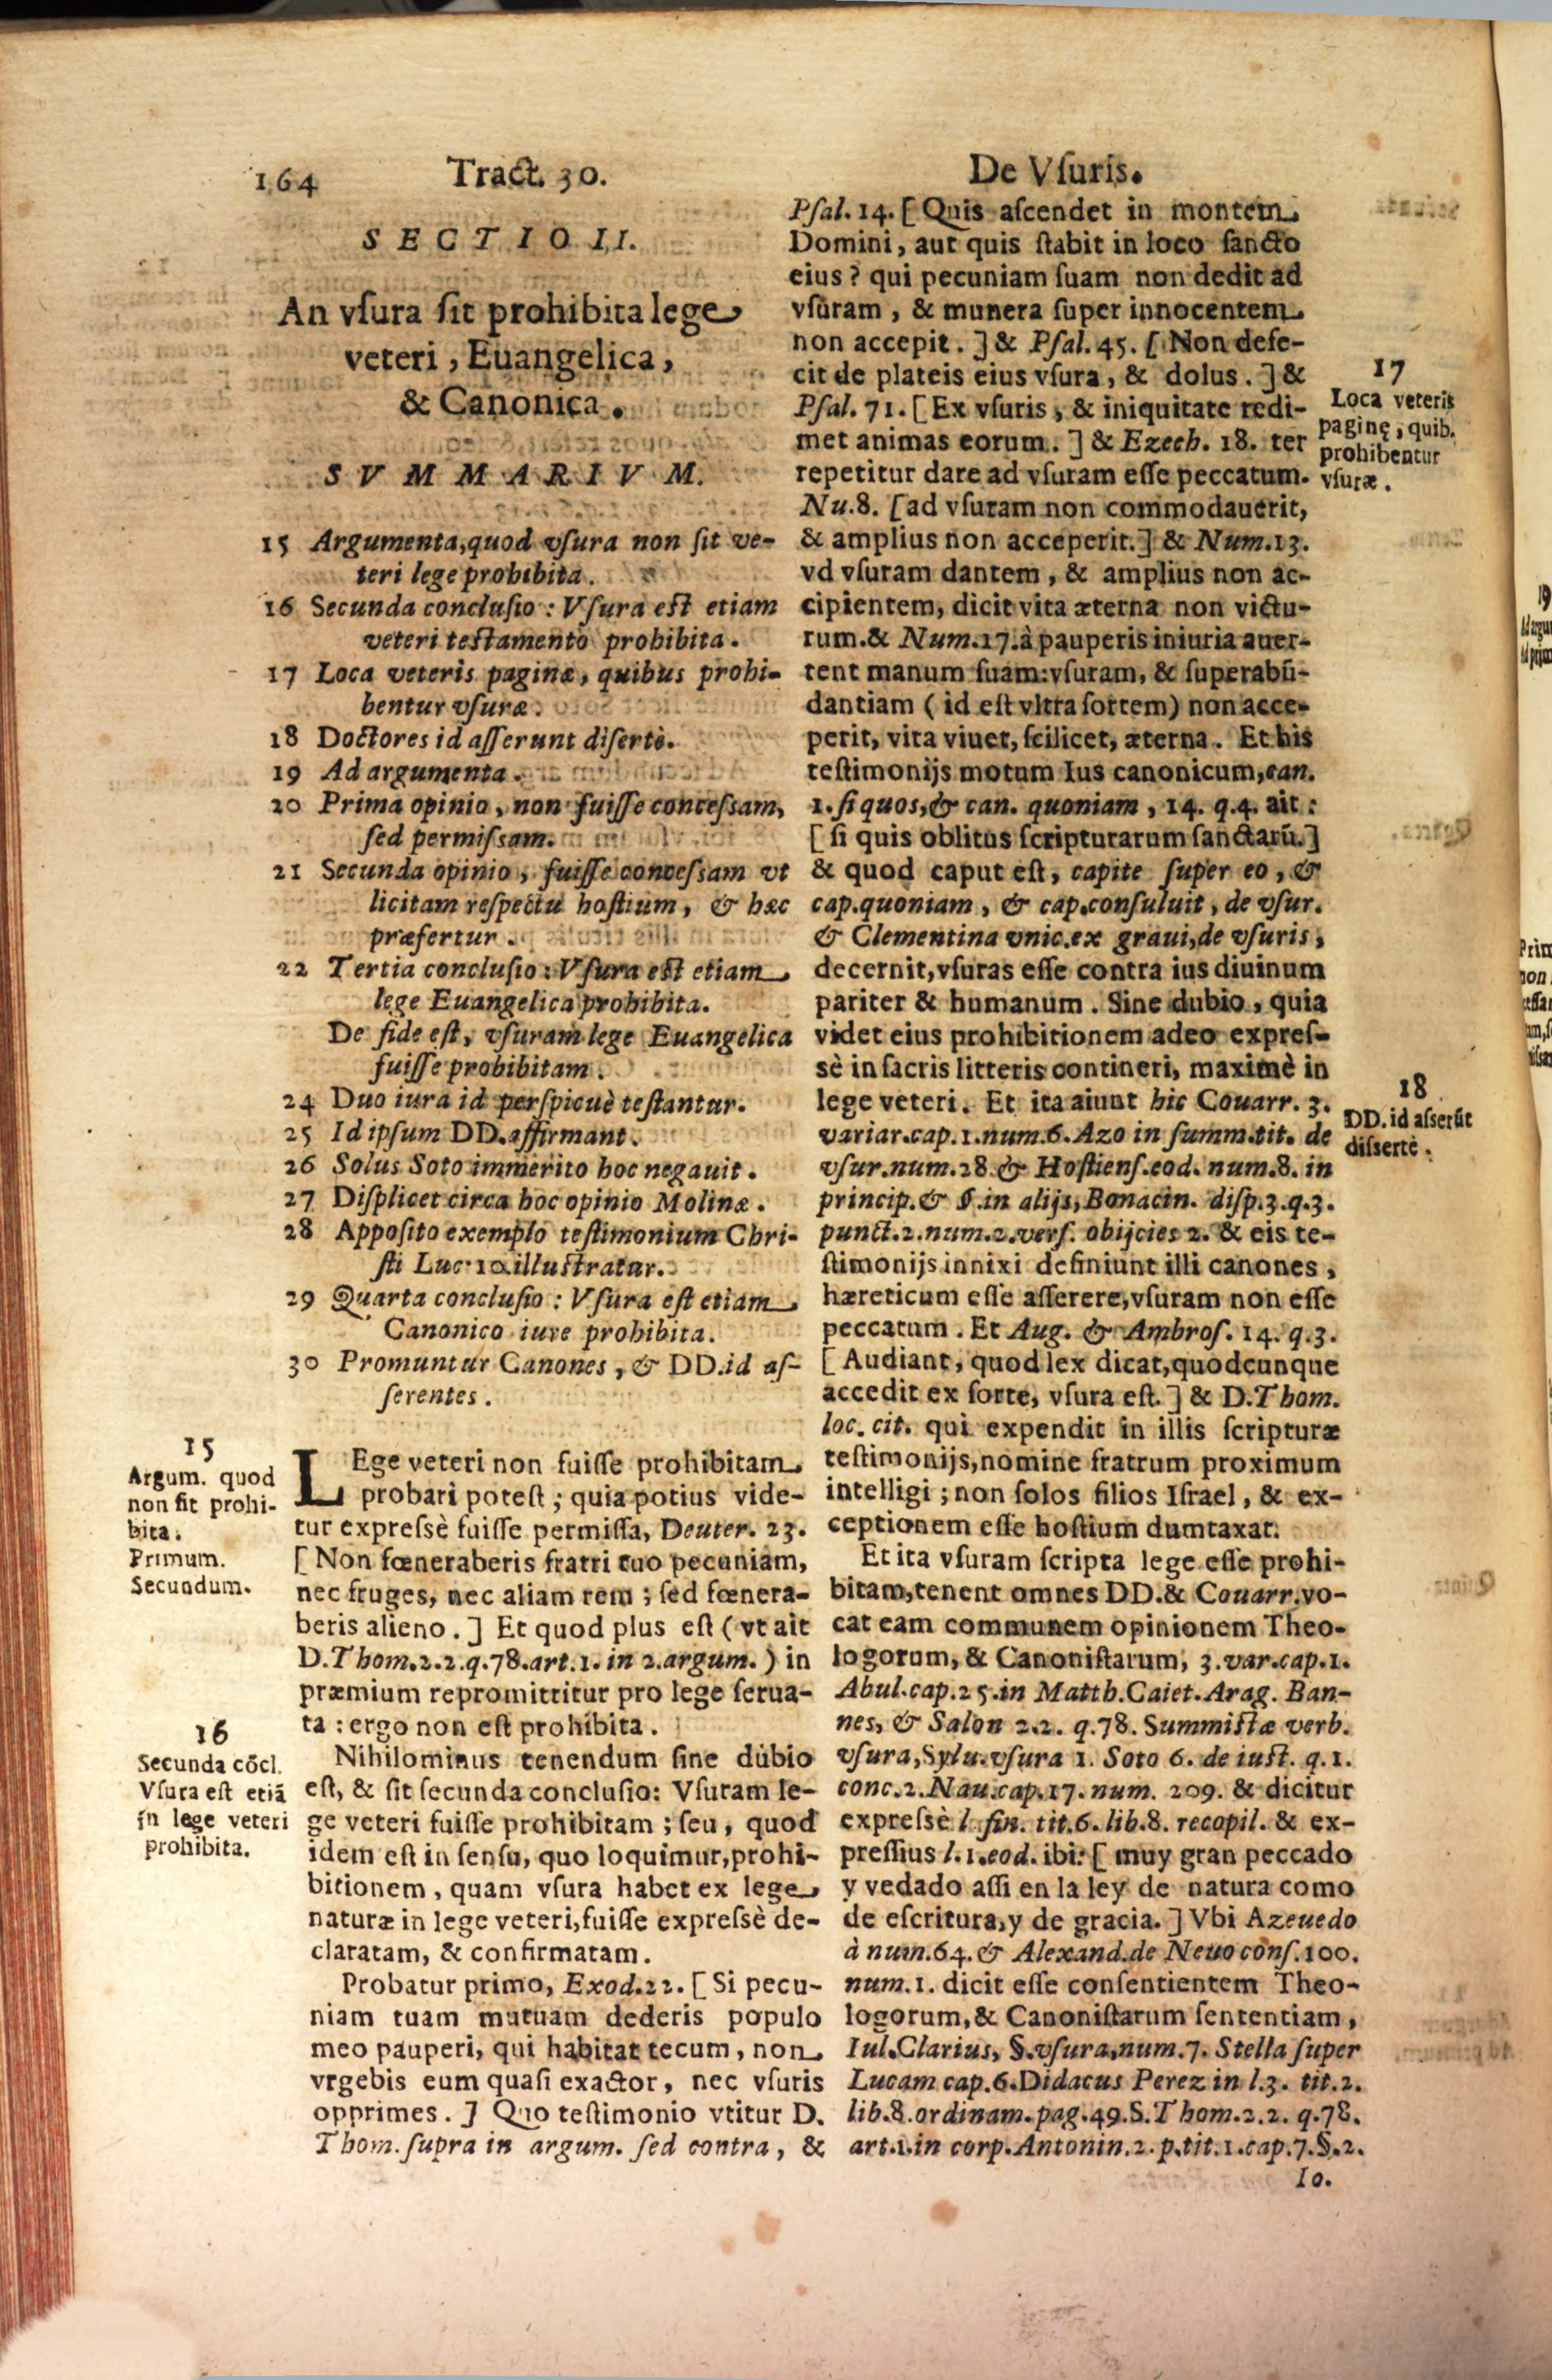 164
Tract. 30.
De Vſuris.
SECTIO II.
An vſura ſit prohibita lege
veteri, Euangelica,
& Canonica.
SVMMARIVM.
15 Argumenta, quod vſura non ſit ve-
teri lege prohibita.
16 Secunda concluſio: Vſura eſt etiam
veteri teſtamento prohibita.
17 Loca veteris paginæ, quibus prohi-
bentur vſuræ.
18 Doctores id aſſerunt diſertè.
19 Ad argumenta.
20 Prima opinio, non fuiſſe conceſsam,
ſed permiſsam.
21 Secunda opinio, fuiſſe conceſsam vt
licitam reſpectu hoſtium, & hæc
præfertur.
22 Tertia concluſio: Vſura eſt etiam
lege Euangelica prohibita.
De fide eſt, vſuram lege Euangelica
fuiſſe prohibitam.
24 Duo iura id perſpicuè teſtantur.
25 Id ipſum DD. affirmant.
26 Solus Soto immerito hoc negauit.
27 Diſplicet circa hoc opinio Molinæ.
28 Appoſito exemplo teſtimonium Chri-
ſti Luc. 10. illuſtratur.
29 Quarta concluſio: Vſura eſt etiam
Canonico iure prohibita.
30 Promuntur Canones, & DD. id aſ-
ſerentes.
15
Argum. quod
non ſit prohi-
bita.
Primum.
Secundum.
LEge veteri non fuiſſe prohibitam
probari poteſt; quia potius vide-
tur expreſsè fuiſſe permiſſa, Deuter. 23.
[Non fœneraberis fratri tuo pecuniam,
nec fruges, nec aliam rem; ſed fœnera-
beris alieno.] Et quod plus eſt (vt ait
D. Thom. 2.2. q. 78. art. 1. in 2. argum.) in
præmium repromittitur pro lege ſerua-
ta: ergo non eſt prohibita.
16
Secunda cōcl.
Vſura eſt etiā
in lege veteri
prohibita.
Nihilominus tenendum ſine dubio
eſt, & ſit ſecunda concluſio: Vſuram le-
ge veteri fuiſſe prohibitam; ſeu, quod
idem eſt in ſenſu, quo loquimur, prohi-
bitionem, quam vſura habet ex lege
naturæ in lege veteri, fuiſſe expreſsè de-
claratam, & confirmatam.
Probatur primo, Exod. 22. [Si pecu-
niam tuam mutuam dederis populo
meo pauperi, qui habitat tecum, non
vrgebis eum quaſi exactor, nec vſuris
opprimes.] Quo teſtimonio vtitur D.
Thom. ſupra in argum. ſed contra, &
Pſal. 14. [Quis aſcendet in montem
Domini, aut quis ſtabit in loco ſancto
eius? qui pecuniam ſuam non dedit ad
vſuram, & munera ſuper innocentem
non accepit.] & Pſal. 45. [Non defe-
cit de plateis eius vſura, & dolus.] &
Pſal. 71. [Ex vſuris, & iniquitate redi-
met animas eorum.] & Ezech. 18. ter
repetitur dare ad vſuram eſſe peccatum.
Nu. 8. [ad vſuram non commodauerit,
& amplius non acceperit.] & Num. 13.
vd vſuram dantem, & amplius non ac-
cipientem, dicit vita æterna non victu-
rum. & Num. 17. à pauperis iniuria auer-
tent manum ſuam: vſuram, & ſuperabū-
dantiam (id eſt vltra ſortem) non acce-
perit, vita viuet, ſcilicet, æterna. Et his
teſtimonijs motum Ius canonicum, can.
1. ſi quos, & can. quoniam, 14. q. 4. ait:
[ſi quis oblitus ſcripturarum ſanctarū.]
& quod caput eſt, capite ſuper eo, &
cap. quoniam, & cap. conſuluit, de vſur.
& Clementina vnic. ex graui, de vſuris,
decernit, vſuras eſſe contra ius diuinum
pariter & humanum. Sine dubio, quia
videt eius prohibitionem adeo expreſ-
sè in ſacris litteris contineri, maximè in
lege veteri. Et ita aiunt hic Couarr. 3.
variar. cap. 1. num. 6. Azo in ſumm. tit. de
vſur. num. 28. & Hoſtienſ. eod. num. 8. in
princip. & §. in alijs, Bonacin. diſp. 3. q. 3.
punct. 2. num. 2. verſ. obijcies 2. & eis te-
ſtimonijs innixi definiunt illi canones,
hæreticum eſſe aſſerere, vſuram non eſſe
peccatum. Et Aug. & Ambroſ. 14. q. 3.
[Audiant, quod lex dicat, quodcunque
accedit ex ſorte, vſura eſt.] & D. Thom.
loc. cit. qui expendit in illis ſcripturæ
teſtimonijs, nomine fratrum proximum
intelligi; non ſolos filios Iſrael, & ex-
ceptionem eſſe hoſtium dumtaxat.
Et ita vſuram ſcripta lege eſſe prohi-
bitam, tenent omnes DD. & Couarr. vo-
cat eam communem opinionem Theo-
logorum, & Canoniſtarum, 3. var. cap. 1.
Abul. cap. 25. in Matth. Caiet. Arag. Ban-
nes, & Salon 2.2. q. 78. Summiſtæ verb.
vſura, Sylu. vſura 1. Soto 6. de iuſt. q. 1.
conc. 2. Nau. cap. 17. num. 209. & dicitur
expreſsè l. fin. tit. 6. lib. 8. recopil. & ex-
preſſius l. 1. eod. ibi: [muy gran peccado
y vedado aſſi en la ley de natura como
de eſcritura, y de gracia.] Vbi Azeuedo
à num. 64. & Alexand. de Neuo conſ. 100.
num. 1. dicit eſſe conſentientem Theo-
logorum, & Canoniſtarum ſententiam,
Iul. Clarius, §. vſura, num. 7. Stella ſuper
Lucam cap. 6. Didacus Perez in l. 3. tit. 2.
lib. 8. ordinam. pag. 49. S. Thom. 2.2. q. 78.
art. 1. in corp. Antonin. 2. p. tit. 1. cap. 7. §. 2.
Io.
17
Loca veteris
paginę, quib.
prohibentur
vſuræ.
18
DD. id aſserūt
diſsertè.